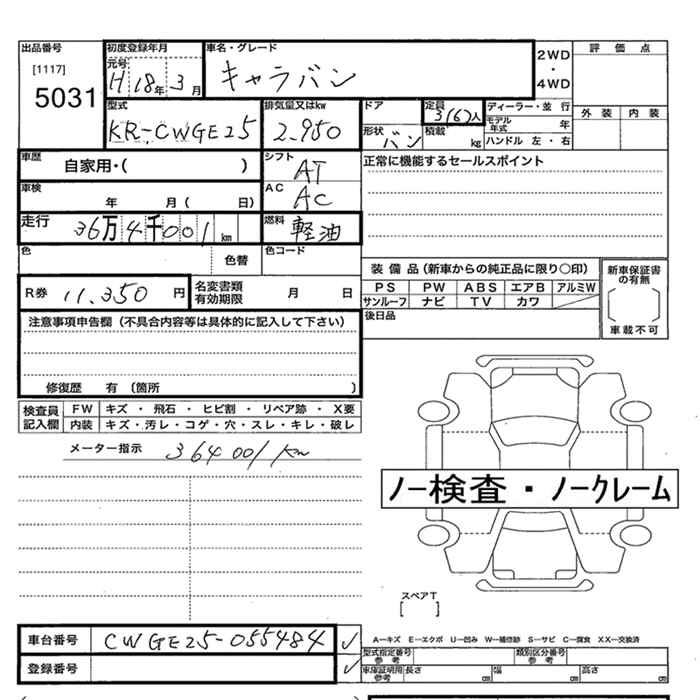 出品番号
[1117]
5031
初度登録年月
元号
H18年3月
車名・グレード
キャラバン
2WD
・
4WD
評価点
外装 内装
型式
KR-CWGE25
排気量又はkw
2.950
ドア
形状 バン
定員
3(6)人
積載 kg
ディーラー・並行
モデル年式 年
ハンドル 左・右
車歴
自家用・( )
シフト
AT
正常に機能するセールスポイント
車検
年 月( 日)
AC
AC
走行
36万4千001km
燃料
軽油
色
色替
色コード
装備品(新車からの純正品に限り○印)
PS PW ABS エアB アルミW
サンルーフ ナビ TV カワ
新車保証書の有無
車載不可
R券 11.350 円
名変書類有効期限 月 日
後日品
注意事項申告欄(不具合内容等は具体的に記入して下さい)
修復歴 有(箇所 )
検査員記入欄
FW キズ・飛石・ヒビ割・リペア跡・X要
内装 キズ・汚レ・コゲ・穴・スレ・キレ・破レ
メーター指示 364001km
ノー検査・ノークレーム
スペアT
[ ]
車台番号 CWGE25-055484 ✓
登録番号 ✓
A―キズ E―エクボ U―凹み W―補修跡 S―サビ C―腐食 XX―交換済
型式指定番号 参考
類別区分番号 参考
車庫証明用参考 長さ cm 幅 cm 高さ cm